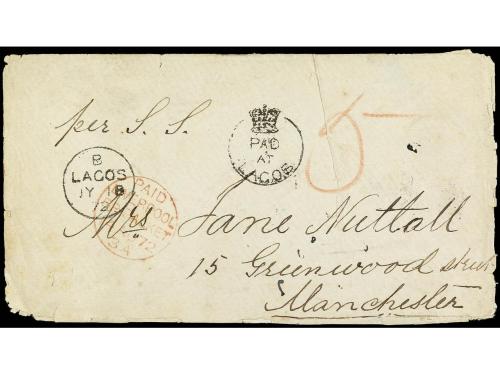 per S. S.
PAID
AT
LAGOS
5
B
LAGOS
JY 18
72
PAID
LIVERPOOL
72
Mrs Jane Nuttall
15 Greenwood street
Manchester